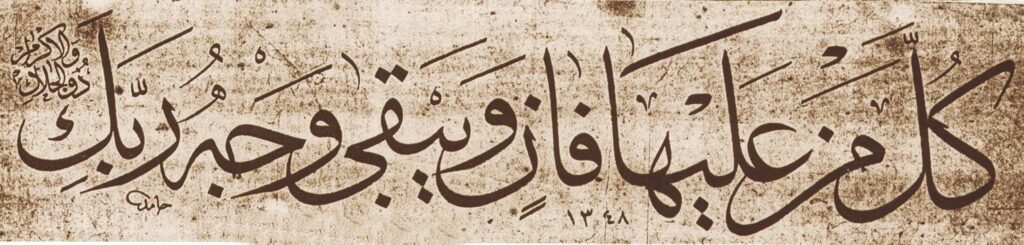 كُلُّ مَنْ عَلَيْهَا فَانٍ وَيَبْقَى وَجْهُ رَبِّكَ
ذو الجلال
والاكرام
حامد
١٣٤٨